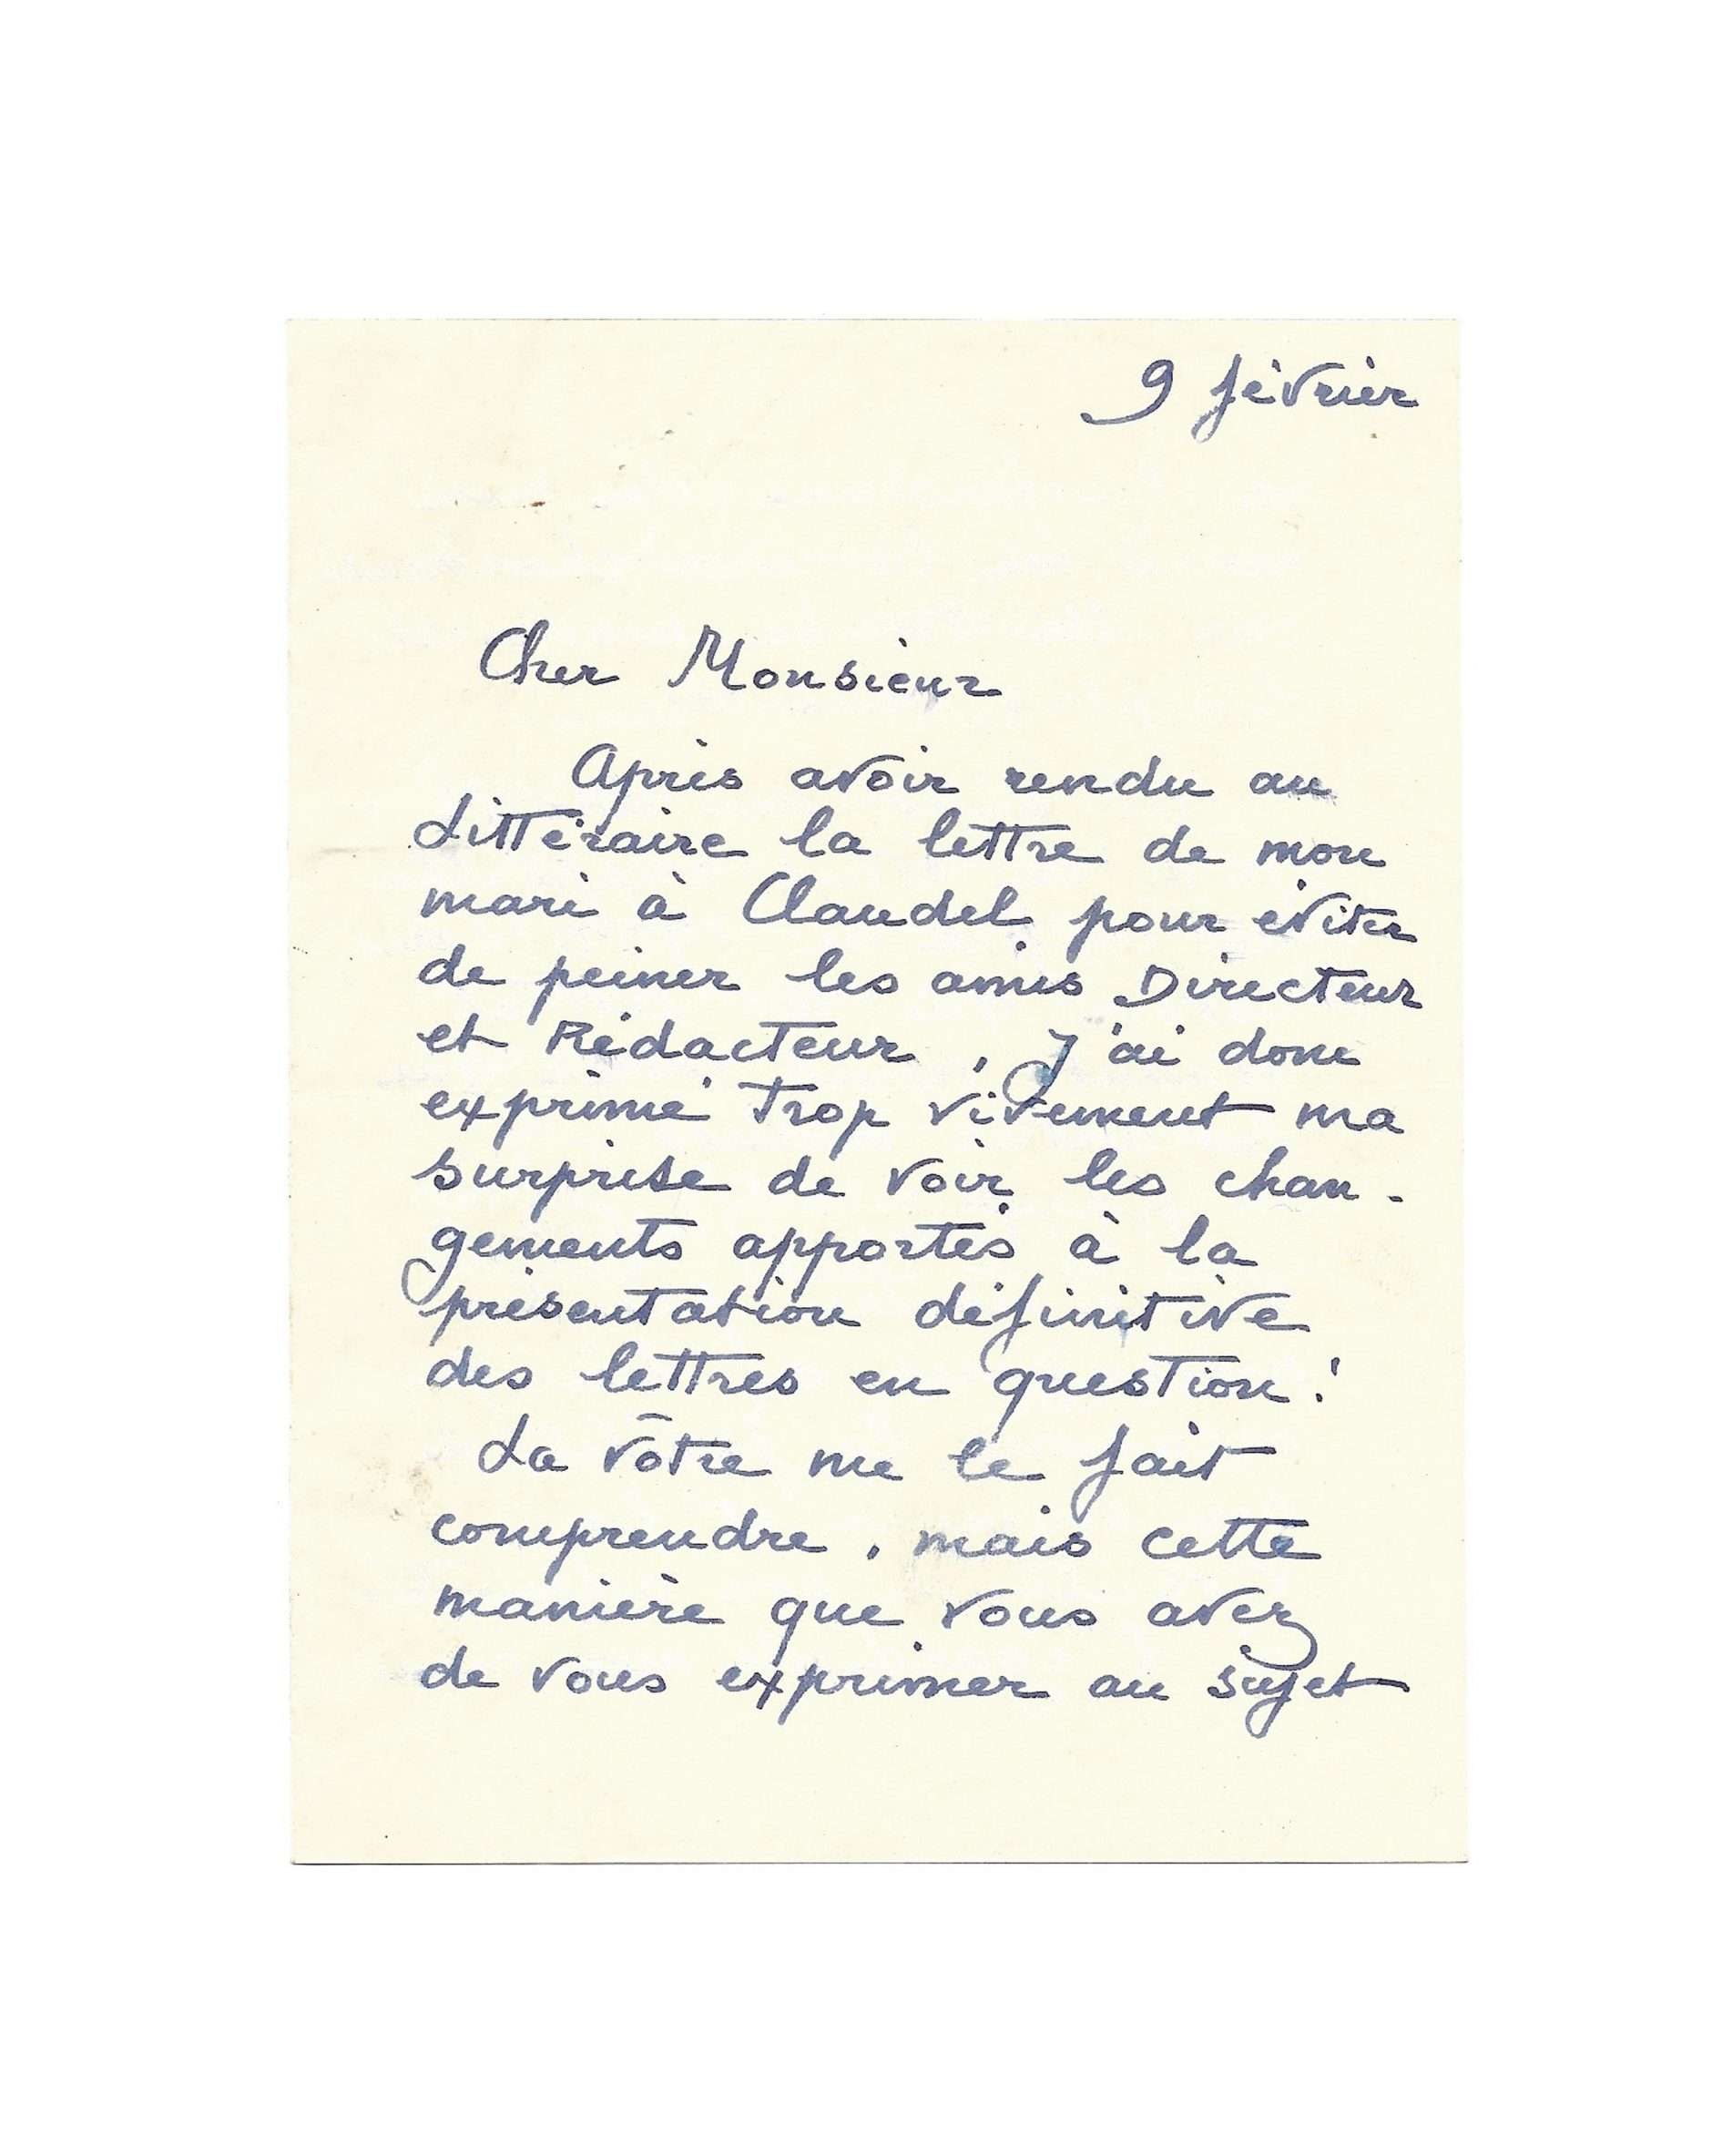 9 février
Cher Monsieur
Après avoir rendu au
Littéraire la lettre de mon
mari à Claudel pour éviter
de peiner les amis Directeur
et Rédacteur, J'ai donc
exprimé trop vivement ma
surprise de voir les chan-
gements apportés à la
présentation définitive
des lettres en question!
La vôtre me le fait
comprendre, mais cette
manière que vous avez
de vous exprimer au sujet